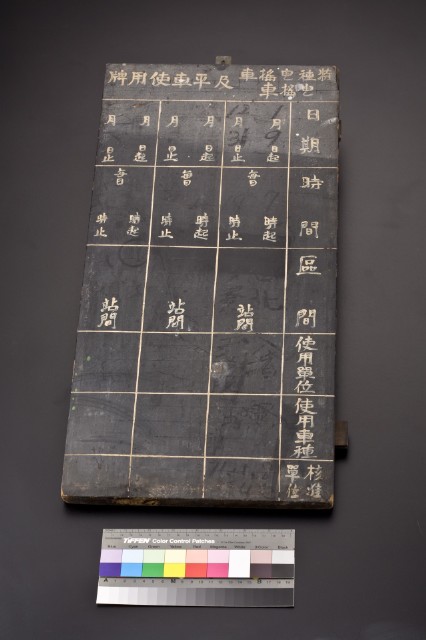 種 搖車
搖車
及平車使用牌
日期
月 日起
月 日止
月 日起
月 日止
月 日起
月 日止
時間
每日
時起
時止
每日
時起
時止
每日
時起
時止
區間
站間
站間
站間
使用單位
使用車種
核准單位
TIFFEN Color Control Patches